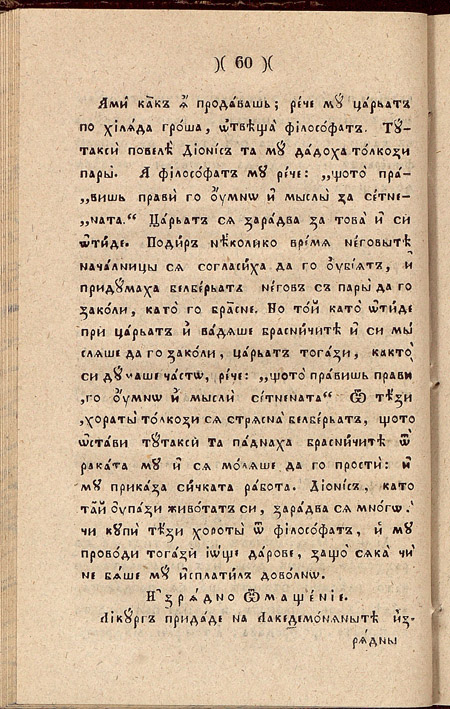 )( 60 )(
Ами́ ка́къ ѫ продáвашь; ре́че мꙋ ца́рьатъ
по хілѧ́да гро́ша, ѿтвѣща̀ філосо́фатъ. Тꙋ-
таксѝ повелѐ Діонѵ́съ та мꙋ да́доха то́лкози
пары̀. Я філосо́фатъ мꙋ ре́че: „щото̀ пра́-
„вишь правѝ го ᲂу҆́мнѡ и҆ мыслы̀ за се́тне-
„ната.“ Ца́рьатъ сѧ зара́два за това̀ и҆ си
ѿи́де. Поди́ръ нѣ́колико вре́мѧ не́говытѣ
нача́лницы сѧ согласи́ха да го ᲂу҆бїѧ́тъ, и҆
придꙋ́маха белбе́рьатъ не́говъ съ пары̀ да го
зако́ли, като̀ го бра́сне. Но то́й като̀ ѿи́де
при ца́рьатъ и҆ ва́дѧше брасни́читѣ и҆ си мы́
слѧше да го зако́ли, ца́рьатъ тога́зи, както̀
си дꙋ́маше ча́стѡ, ре́че: „щото̀ пра́вишь правѝ
‚го ᲂу҆́мнѡ и҆ мыслѝ се́тнената“ Ѿ тѣ́зи
‚хораты̀ то́лкози сѧ стрѧ́сна белбе́рьатъ, щото̀
ѡста́ви тꙋ́таксѝ та па́днаха брасни́читѣ ѿ
рака́та мꙋ и҆ сѧ мо́лѧше да го простѝ: и҆
мꙋ прика́за си́чката ра́бота. Діонѵ́съ, като
та́й ᲂупа́зи живо́татъ си, зара́два сѧ мно́гѡ.
чи купѝ тѣ́зи хороты̀ ѿ філосо́фатъ, и҆ мꙋ
прово́ди тога́зи і҆ѡ́ще да́рове, защо̀ сѧка̀ чѝ
не бѧ́ше мꙋ и҆спла́тилъ дово́лнѡ.
Изрѧ́дно Ѿмаще́ніе.
Лікꙋ́ргъ прида́де на Лакедемо́нѧнытѣ и҆з-
рѧ́дны